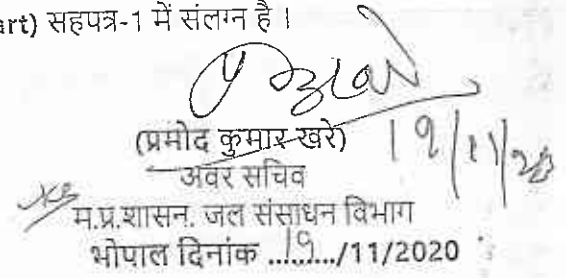 art) सहपत्र-1 में संलग्न है ।
(प्रमोद कुमार खरे)
19/11/20
अवर सचिव
म.प्र.शासन. जल संसाधन विभाग
भोपाल दिनांक ...19.../11/2020